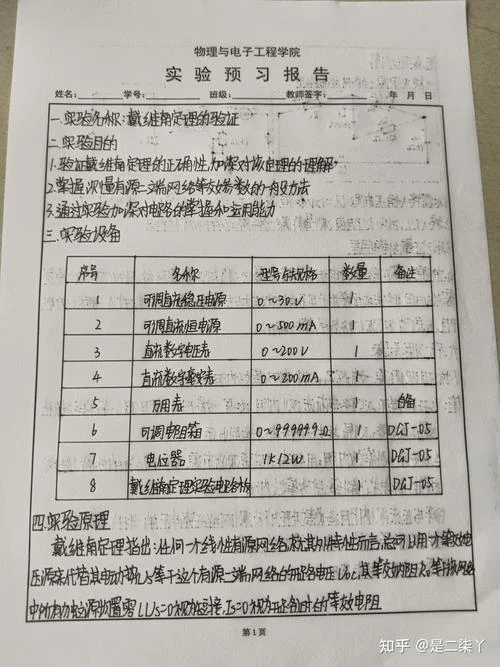 物理与电子工程学院
实验预习报告
姓名: 学号: 班级: 教师签字: 年 月 日
一.实验名称:戴维南定理的验证
二.实验目的
1.验证戴维南定理的正确性,加深对该定理的理解
2.掌握测量有源二端网络等效参数的一般方法
3.通过实验加深对电路的掌握和运用能力
三.实验设备
序号 名称 型号与规格 数量 备注
1 可调直流稳压电源 0~30V 1
2 可调直流恒流源 0~500mA 1
3 直流数字电压表 0~200V 1
4 直流数字毫安表 0~200mA 1
5 万用表 1 自备
6 可调电阻箱 0~99999.9Ω 1 DGJ-05
7 电位器 1K/2W 1 DGJ-05
8 戴维南定理实验电路板 DGJ-05
四.实验原理
戴维南定理指出:任何一个线性有源网络,就其外特性而言,总可以用一个等效电
压源来代替,其电动势Us等于这个有源二端网络的开路电压Uoc,其等效内阻R0等于该网络
中所有独立源均置零(Us=0视为短接,Is=0视为开路)时的等效电阻
第1页
知乎 @是二柒丫